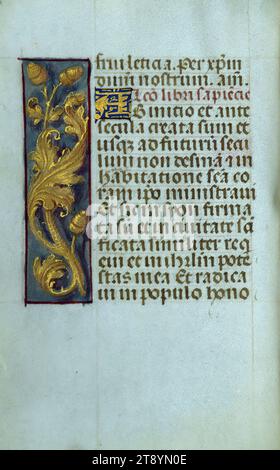 frui leticia. Per xp̄m
dnm nostrum. am̄.
Lc̄o libri sapiēcie
AB initio et ante
secula creata sum et
usq; ad futurū secu
lum non desinā et in
habitatione scā co
ram ipo ministraui
Et sic in syon firma
ta sū et in ciuitate sā
ctificata similiter req
eui et in ihrl̄m pote
stas mea Et radica
ui in populo hono
alamy
Image ID: 2T8YN0E
www.alamy.com